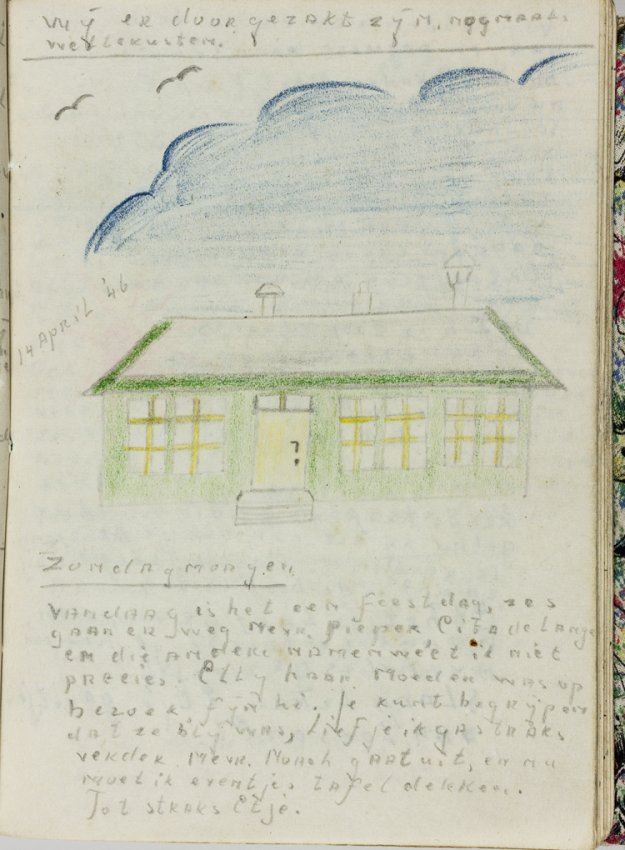 wij er doorgezakt zijn, nogmaals
welterusten.
14 April '46
Zondagmorgen.
Vandaag is het een feestdag, zes
gaan er weg Mevr. Pieper Cita de Lange
en die andere namen weet ik niet
precies. Elly haar Moeder was op
bezoek fijn hè. Je kunt begrijpen
dat ze blij was, Liefje ik ga straks
verder Mevr. Monch gaat uit, en nu
moet ik eventjes tafel dekken.
Tot straks Etje.